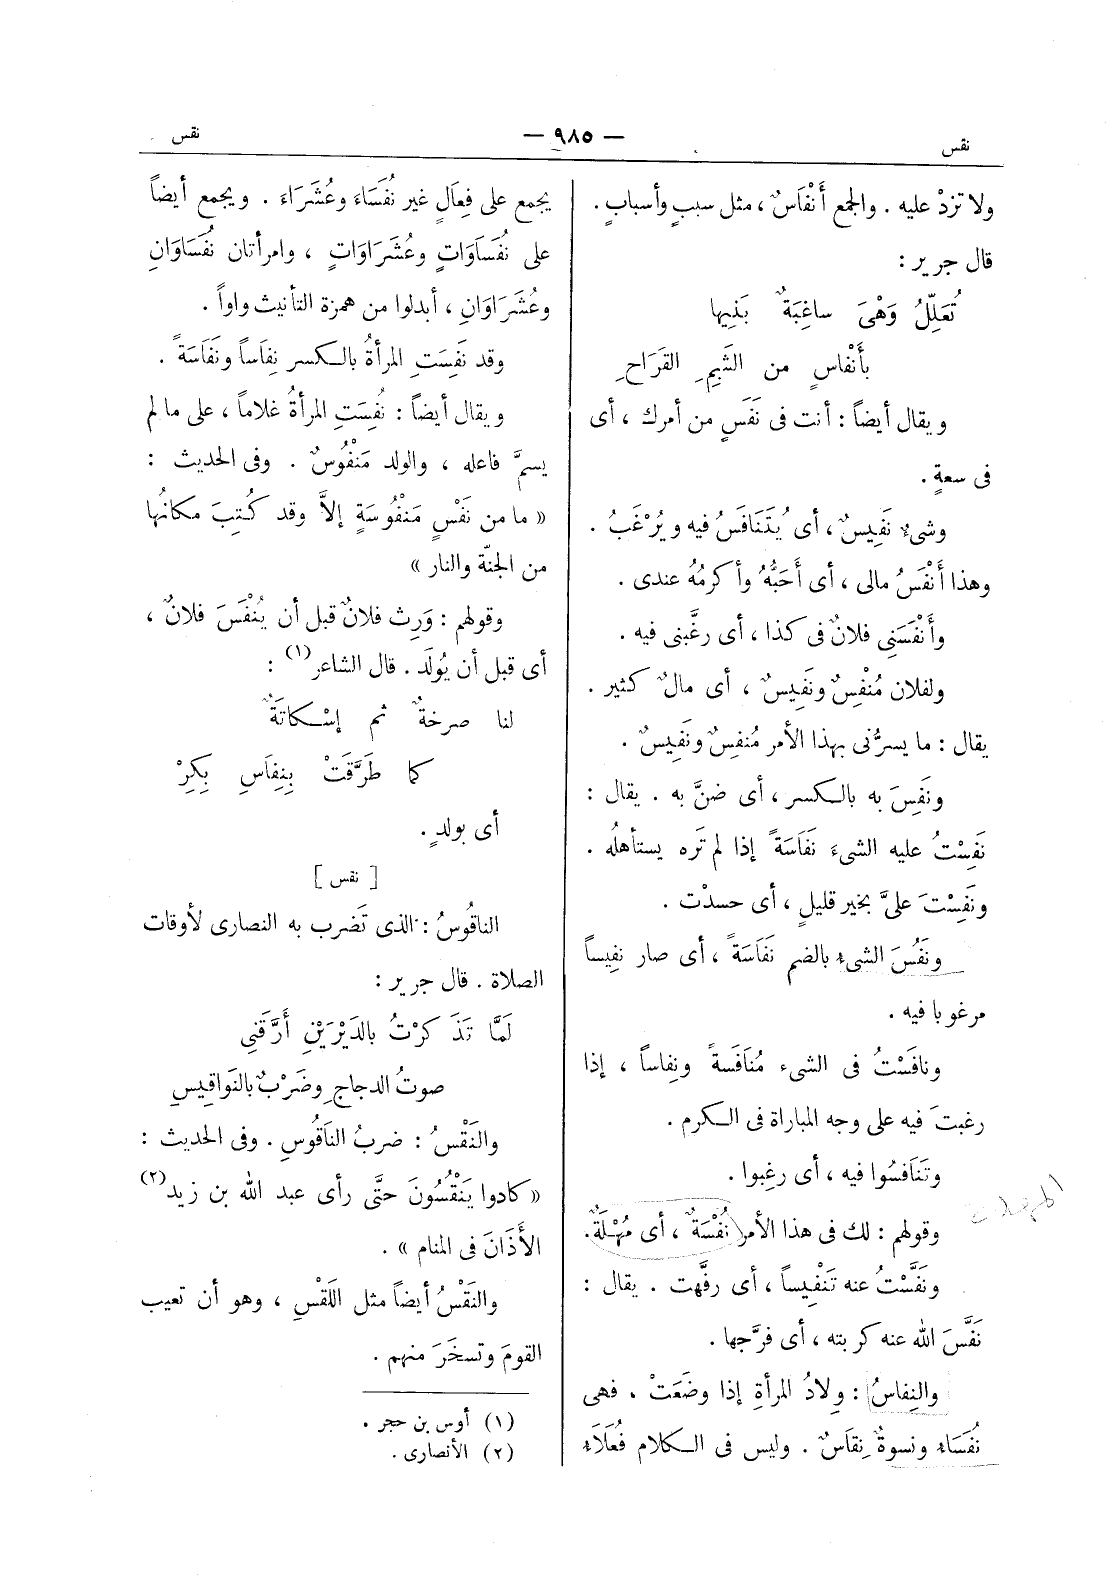 نقس
— ٩٨٥ —
نقس
ولا تزدْ عليه . والجمع أَنْفَاسٌ ، مثل سببٍ وأسبابٍ .
قال جرير :
تُعَلِّلُ وَهْىَ ساغِبَةٌ بَنِيها
بأَنْفاسٍ من الشَّبِمِ القَرَاحِ
ويقال أيضاً : أنت فى نَفَسٍ من أمرك ، أى
فى سعةٍ .
وشىءٌ نَفِيسٌ ، أى يُتَنَافَسُ فيه ويُرْغَبُ .
وهذا أَنْفَسُ مالى ، أى أَحَبُّهُ وأكرمُهُ عندى .
وأَنْفَسَنِى فلانٌ فى كذا ، أى رغَّبنى فيه .
ولفلان مُنْفِسٌ ونَفِيسٌ ، أى مالٌ كثير .
يقال : ما يسرُّنى بهذا الأمر مُنفِسٌ ونَفِيسٌ .
ونَفِسَ به بالكسر ، أى ضنَّ به . يقال :
نَفِسْتُ عليه الشىءَ نَفَاسَةً إذا لم تَره يستأهلُه .
ونَفِسْتَ علىَّ بخير قليلٍ ، أى حسدْت .
ونَفُسَ الشىءُ بالضم نَفَاسَةً ، أى صار نفِيساً
مرغوبا فيه .
ونافَسْتُ فى الشىء مُنَافَسةً ونِفاساً ، إذا
رغبتَ فيه على وجه المباراة فى الكرم .
وتَنَافَسُوا فيه ، أى رغِبوا .
وقولهم : لك فى هذا الأمر نُفْسَةٌ ، أى مُهْلَةٌ .
ونَفَّسْتُ عنه تَنْفِيساً ، أى رفَّهت . يقال :
نَفَّسَ الله عنه كربته ، أى فرَّجها .
والنِفاسُ : وِلادُ المرأةِ إذا وضَعَتْ ، فهى
نُفَسَاءُ ونسوةٌ نِفَاسٌ . وليس فى الكلام فُعَلَاءُ
يجمع على فِعَالٍ غير نُفَسَاءَ وعُشَرَاءَ . ويجمع أيضاً
على نُفَسَاوَاتٍ وعُشَرَاوَاتٍ ، وامرأتان نُفَسَاوَانِ
وعُشَرَاوَانِ ، أبدلوا من همزة التأنيث واواً .
وقد نَفِسَتِ المرأةُ بالكسر نِفَاساً ونَفَاسَةً .
ويقال أيضاً : نُفِسَتِ المرأةُ غلاماً ، على ما لم
يسمَّ فاعله ، والولد مَنْفُوسٌ . وفى الحديث :
« ما من نَفْسٍ مَنْفُوسَةٍ إلاَّ وقد كُتِبَ مكانُها
من الجنّة والنار »
وقولهم : وَرِث فلانٌ قبل أن يُنْفَسَ فلانٌ ،
أى قبل أن يُولَد . قال الشاعر (١) :
لنا صرخةٌ ثم إسْكاتَةٌ
كما طَرَّقَتْ بِنِفَاسٍ بِكِرْ
أى بولدٍ .
[ نقس ]
الناقُوسُ : الذى تَضرب به النصارى لأوقات
الصلاة . قال جرير :
لَمَّا تَذَكرْتُ بالدَيْرَيْنِ أَرَّقَنِى
صوتُ الدجاجِ وضَرْبٌ بالنَواقِيسِ
والنَقْسُ : ضربُ الناَقُوسِ . وفى الحديث :
« كادوا يَنْقُسُونَ حتَّى رأى عبد الله بن زيد (٢)
الأَذَانَ فى المنام » .
والنَقْسُ أيضاً مثل اللَقْسِ ، وهو أن تعيب
القومَ وتسخَرَ منهم .
(١) أوس بن حجر .
(٢) الأنصارى .